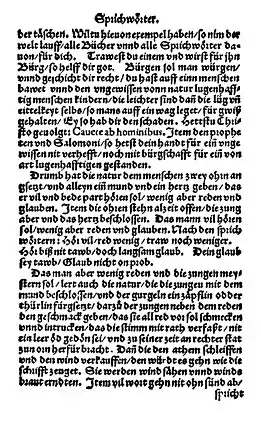 Sprichwörter.
der täschen. Wiltu hieuon exempel haben / so nim der
welt lauff / alle Bücher vnnd alle Sprichwörter da-
uon / für dich. Trawestu einem vnd wirst für jhn
Bürg / so hilff dir got. Bürgen sol man würgen /
vnnd geschicht dir recht / du hast auff einn menschen
bawet vnnd den vngewissen vonn natur lugenhaff-
tig menschen kindern / die leichter sind dañ die lüg vñ
eittelkeyt selbs / so mans auff ein wag leget / für gwiß
gehalten / Ey so hab dir den schaden. Hettstu Chri-
sto geuolgt: Cauete ab hominibus. Item den prophe-
ten vnd Salomoni / so hetst dein handt für ein vnge
wissen nit verhefft / noch mit bürgschafft für ein von
art lugenhafftigen gestanden.
Drumb hat die natur dem menschen zwey ohrn an
gsetzt / vnd alleyn ein mund vnd ein hertz geben / das
er vil vnd bede part hören sol / wenig aber reden vnd
glauben. Item die ohren stehn alzeit offen / die zung
aber vnd das hertz bschlossen. Das mann vil hören
sol / wenig aber reden vnd glauben. Nach den sprich
wörtern: Hör vil / red wenig / traw noch weniger.
Hör biß nit tawb / doch langsam glaub. Dein glaub
sey tawb / Glaub nicht on prob.
Das man aber wenig reden vnd die zungen mey-
stern sol / lert auch die natur / die die zungen mit dem
mund beschlossen / vnd der gurgeln ein zäpflin od der
thürlin fürgsetzt / darzů der zungen neben dem reden
den geschmack geben / das sie all red vor sol schmecken
vnnd intrucken / das die stimm mit rath verfaßt / nit
ein leer öd gedön sei / vnd zu seiner zeit an rechter stat
zum oin herfür bracht. Dañ die den athem schleiffen
vnd den wind verkauffen / den würdt es gehn wie die
schrifft zeuget. Sie werden wind sähen vnnd winds
braut erndten. Item vil wort gehn nit ohn sünd ab /
spricht